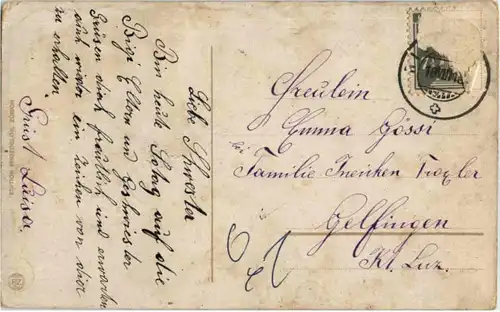 Liebe Schwester
Bin heute Sotag auf die
Rigi Eltern und Geschwister
Grüsen dich freulich und erwarten
auch wieder ein zeichen von dier
zu erhalten
Grüst Luisa
Freulein
Emma Gössi
bei
Familie Troxler
Gelfingen
Kt. Luz.